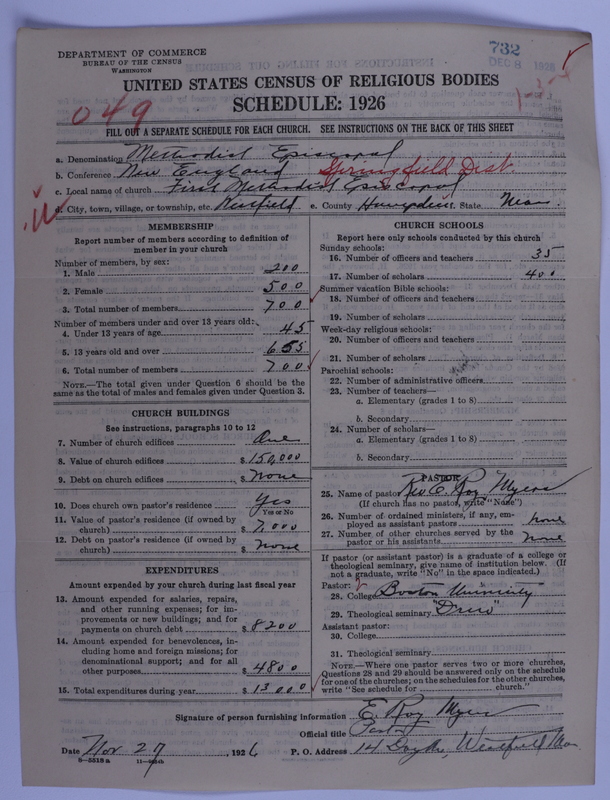 732
DEC 8 1926
DEPARTMENT OF COMMERCE
BUREAU OF THE CENSUS
WASHINGTON
UNITED STATES CENSUS OF RELIGIOUS BODIES
SCHEDULE: 1926
049
1-3-4
FILL OUT A SEPARATE SCHEDULE FOR EACH CHURCH. SEE INSTRUCTIONS ON THE BACK OF THIS SHEET
a. Denomination Methodist Episcopal
b. Conference New England Springfield Dist.
c. Local name of church First Methodist Episcopal
d. City, town, village, or township, etc. Westfield e. County Hampden f. State Mass.
MEMBERSHIP
Report number of members according to definition of member in your church
Number of members, by sex:
1. Male 200
2. Female 500
3. Total number of members 700
Number of members under and over 13 years old:
4. Under 13 years of age 45
5. 13 years old and over 655
6. Total number of members 700
NOTE.—The total given under Question 6 should be the same as the total of males and females given under Question 3.
CHURCH BUILDINGS
See instructions, paragraphs 10 to 12
7. Number of church edifices One
8. Value of church edifices $150,000
9. Debt on church edifices $ None
10. Does church own pastor's residence Yes
Yes or No
11. Value of pastor's residence (if owned by church) $ 7,000
12. Debt on pastor's residence (if owned by church) $ None
EXPENDITURES
Amount expended by your church during last fiscal year
13. Amount expended for salaries, repairs, and other running expenses; for improvements or new buildings; and for payments on church debt $ 8200
14. Amount expended for benevolences, including home and foreign missions; for denominational support; and for all other purposes $ 4800
15. Total expenditures during year $ 13000
CHURCH SCHOOLS
Report here only schools conducted by this church
Sunday schools:
16. Number of officers and teachers 35
17. Number of scholars 400
Summer vacation Bible schools:
18. Number of officers and teachers
19. Number of scholars
Week-day religious schools:
20. Number of officers and teachers
21. Number of scholars
Parochial schools:
22. Number of administrative officers
23. Number of teachers—
a. Elementary (grades 1 to 8)
b. Secondary
24. Number of scholars—
a. Elementary (grades 1 to 8)
b. Secondary
PASTOR
25. Name of pastor Rev E. Roy Myers
(If church has no pastor, write "None")
26. Number of ordained ministers, if any, employed as assistant pastors None
27. Number of other churches served by the pastor or his assistants None
If pastor (or assistant pastor) is a graduate of a college or theological seminary, give name of institution below. (If not a graduate, write "No" in the space indicated.)
Pastor:
28. College Boston University
29. Theological seminary "Drew"
Assistant pastor:
30. College
31. Theological seminary
NOTE.—Where one pastor serves two or more churches, Questions 28 and 29 should be answered only on the schedule for one of the churches; on the schedules for the other churches, write "See schedule for church."
Signature of person furnishing information E. Roy Myers
Official title Pastor
Date Nov 27, 1926 P. O. Address 14 Westfield Mass
8—5518a